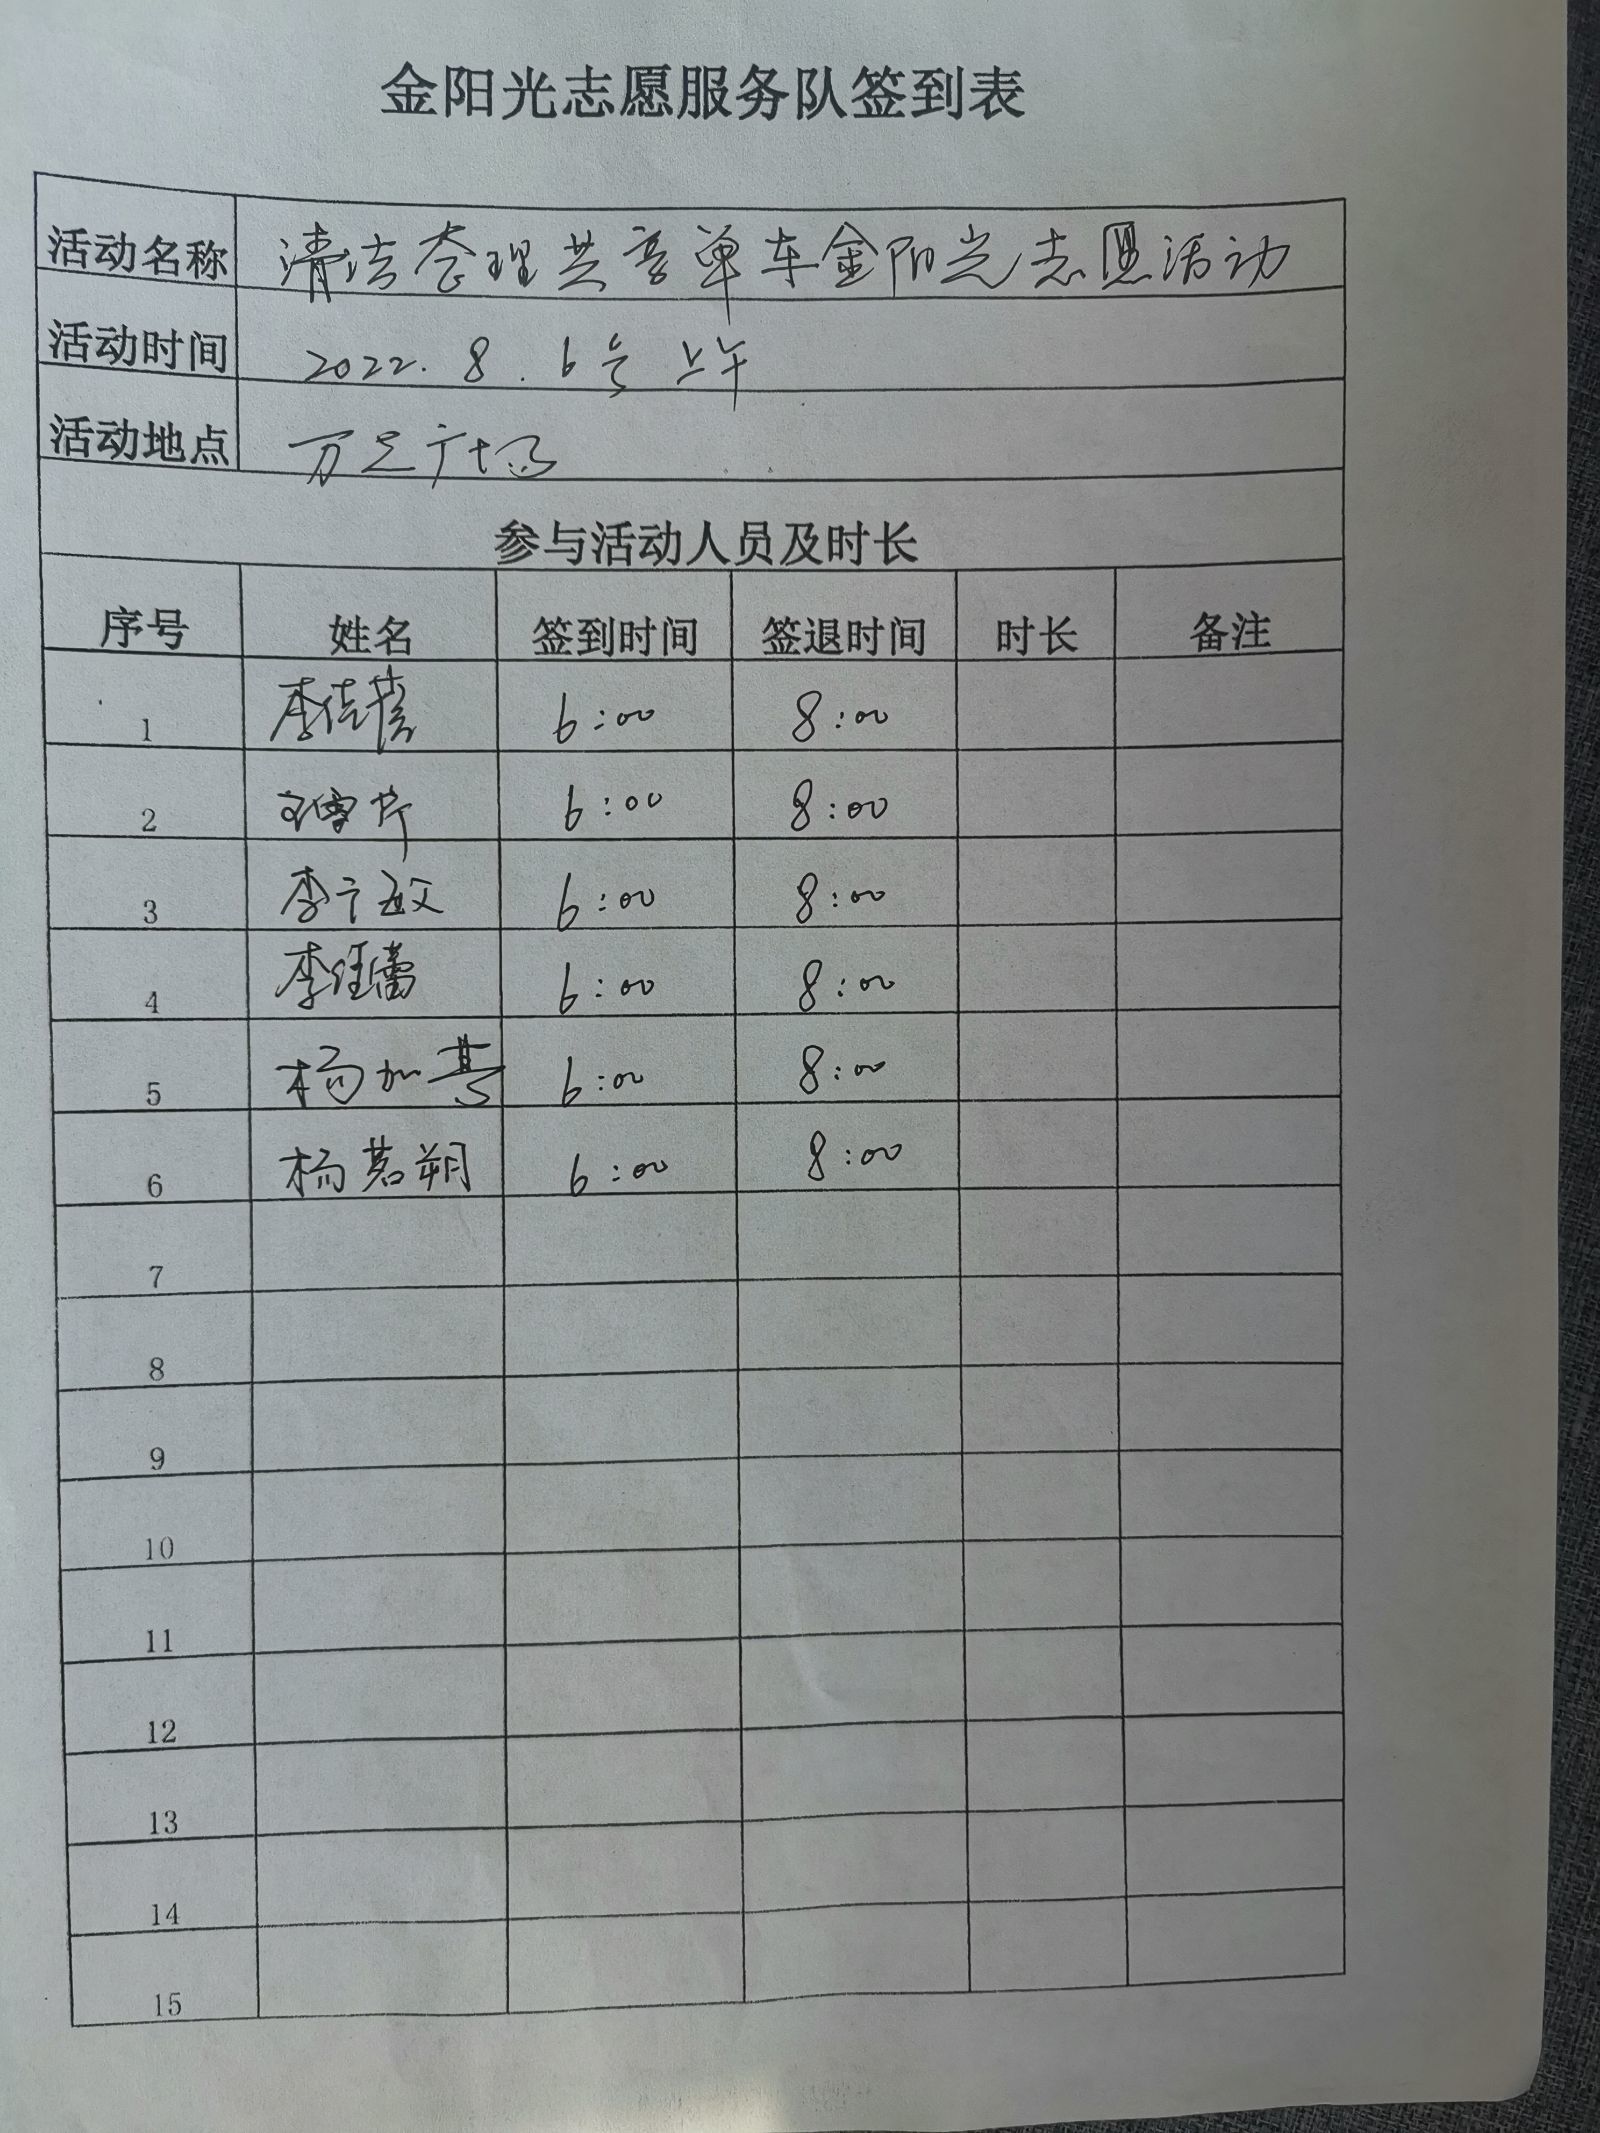 金阳光志愿服务队签到表
活动名称 清洁整理共享单车金阳光志愿活动
活动时间 2022.8.6号上午
活动地点 万足广场
参与活动人员及时长
序号 姓名 签到时间 签退时间 时长 备注
1 李 6:00 8:00
2 6:00 8:00
3 李广政 6:00 8:00
4 李佳蕾 6:00 8:00
5 杨加 6:00 8:00
6 杨茗朔 6:00 8:00
7
8
9
10
11
12
13
14
15